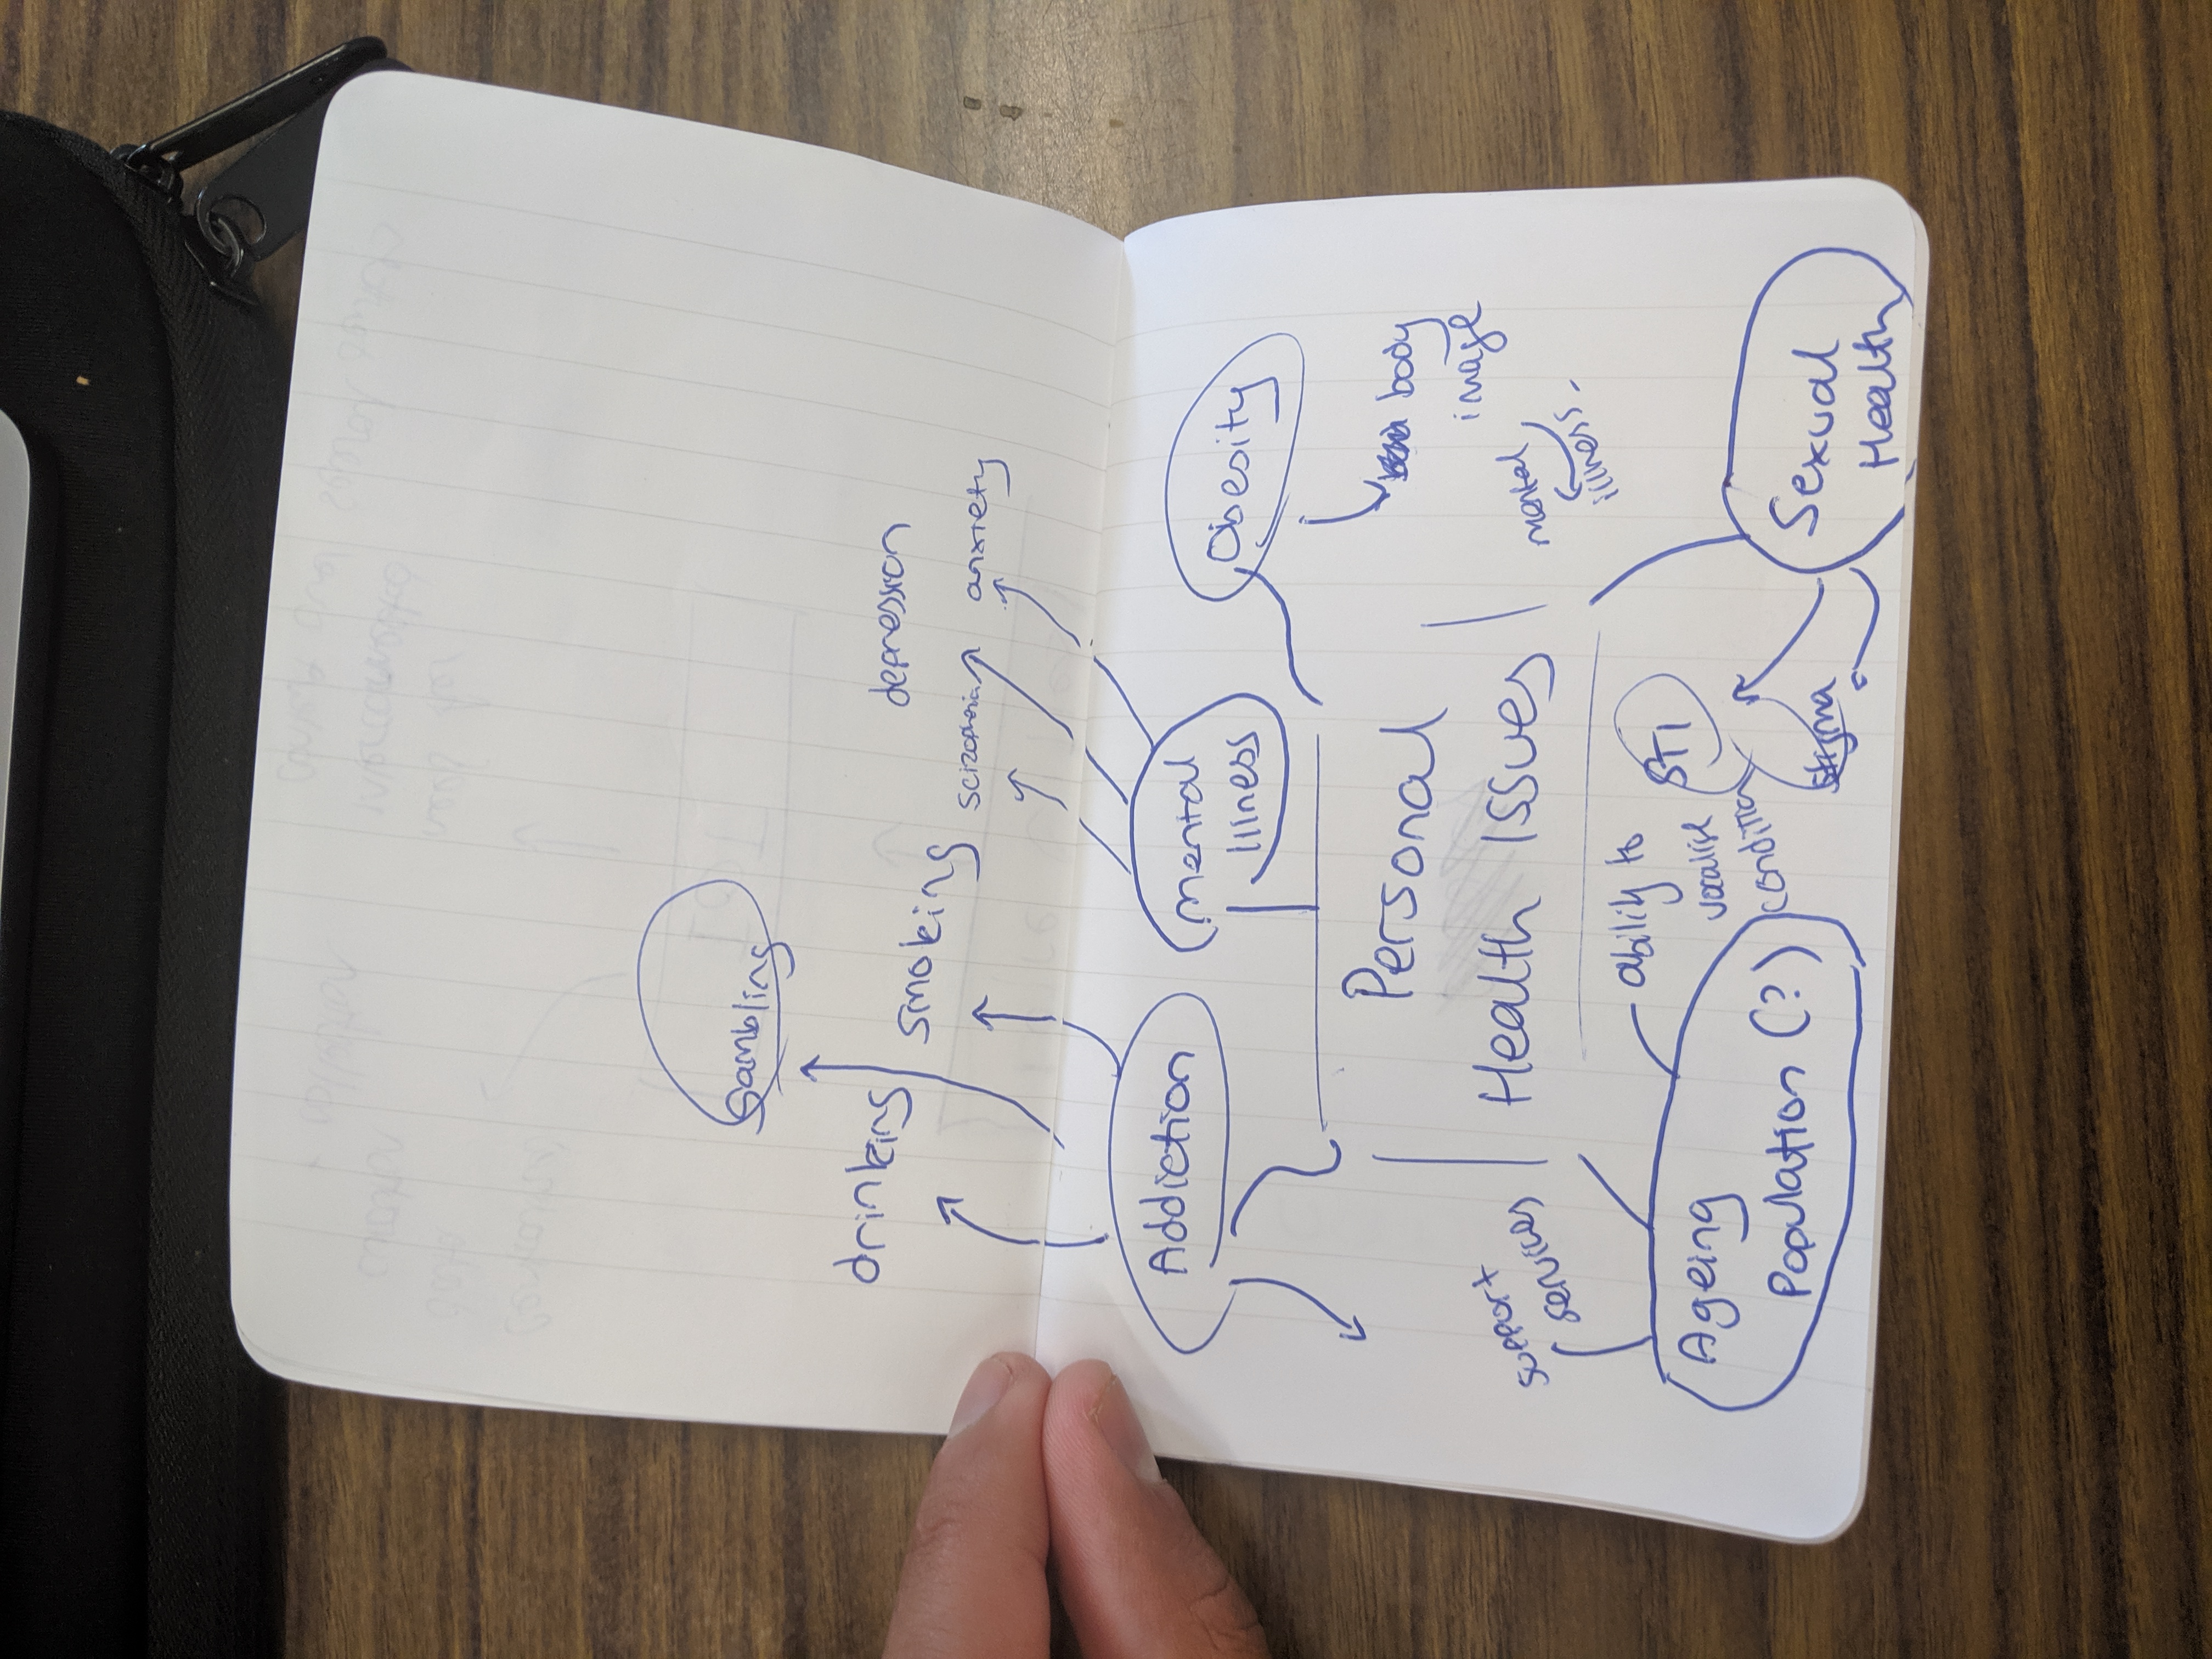 Gambling
drinking
smoking
depression
scizophenia
anxiety
Addiction
Mental
Illness
Obesity
Personal
Health Issues
body
image
mental
illness.
support
services
ability to
vocalise
condition
STI
stigma
Ageing
Population (?)
Sexual
Health